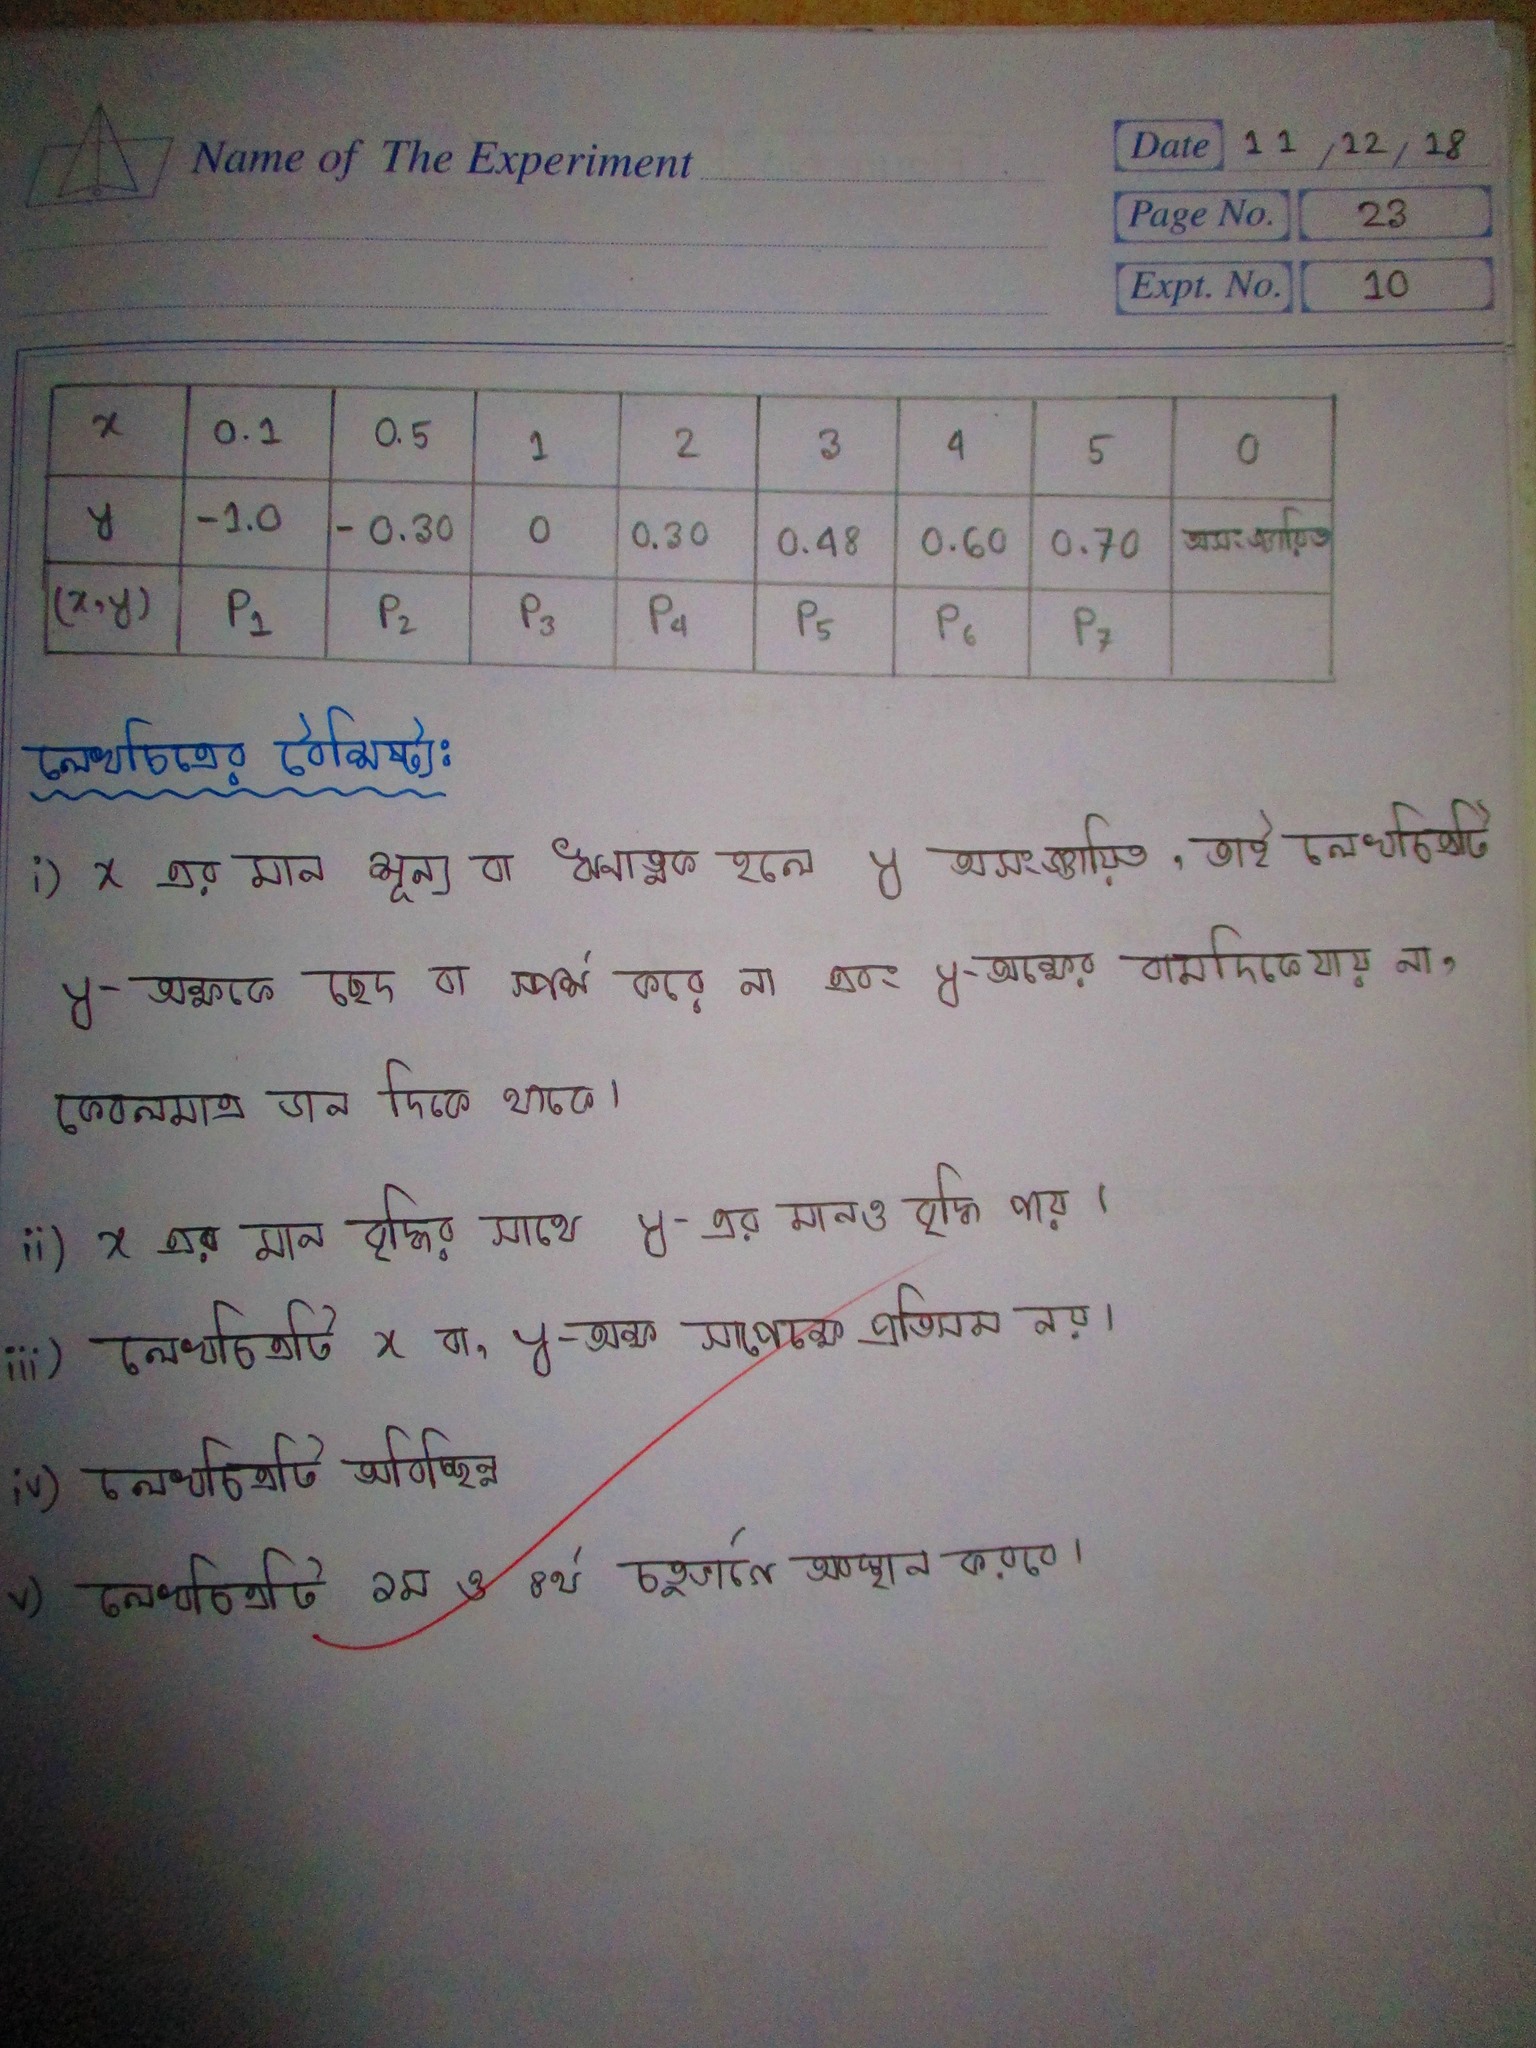 Name of The Experiment
Date 11/12/18
Page No. 23
Expt. No. 10
x 0.1 0.5 1 2 3 4 5 0
y -1.0 -0.30 0 0.30 0.48 0.60 0.70 অসংজ্ঞায়িত
(x,y) P1 P2 P3 P4 P5 P6 P7
লেখচিত্রের বৈশিষ্ট্যঃ
i) x এর মান শূন্য বা ঋণাত্মক হলে y অসংজ্ঞায়িত, তাই লেখচিত্রটি
y-অক্ষকে ছেদ বা স্পর্শ করে না এবং y-অক্ষের বামদিকে যায় না,
কেবলমাত্র ডান দিকে থাকে।
ii) x এর মান বৃদ্ধির সাথে y-এর মানও বৃদ্ধি পায়।
iii) লেখচিত্রটি x বা, y-অক্ষ সাপেক্ষে প্রতিসম নয়।
iv) লেখচিত্রটি অবিচ্ছিন্ন
v) লেখচিত্রটি ১ম ও ৪র্থ চতুর্ভাগে অবস্থান করবে।